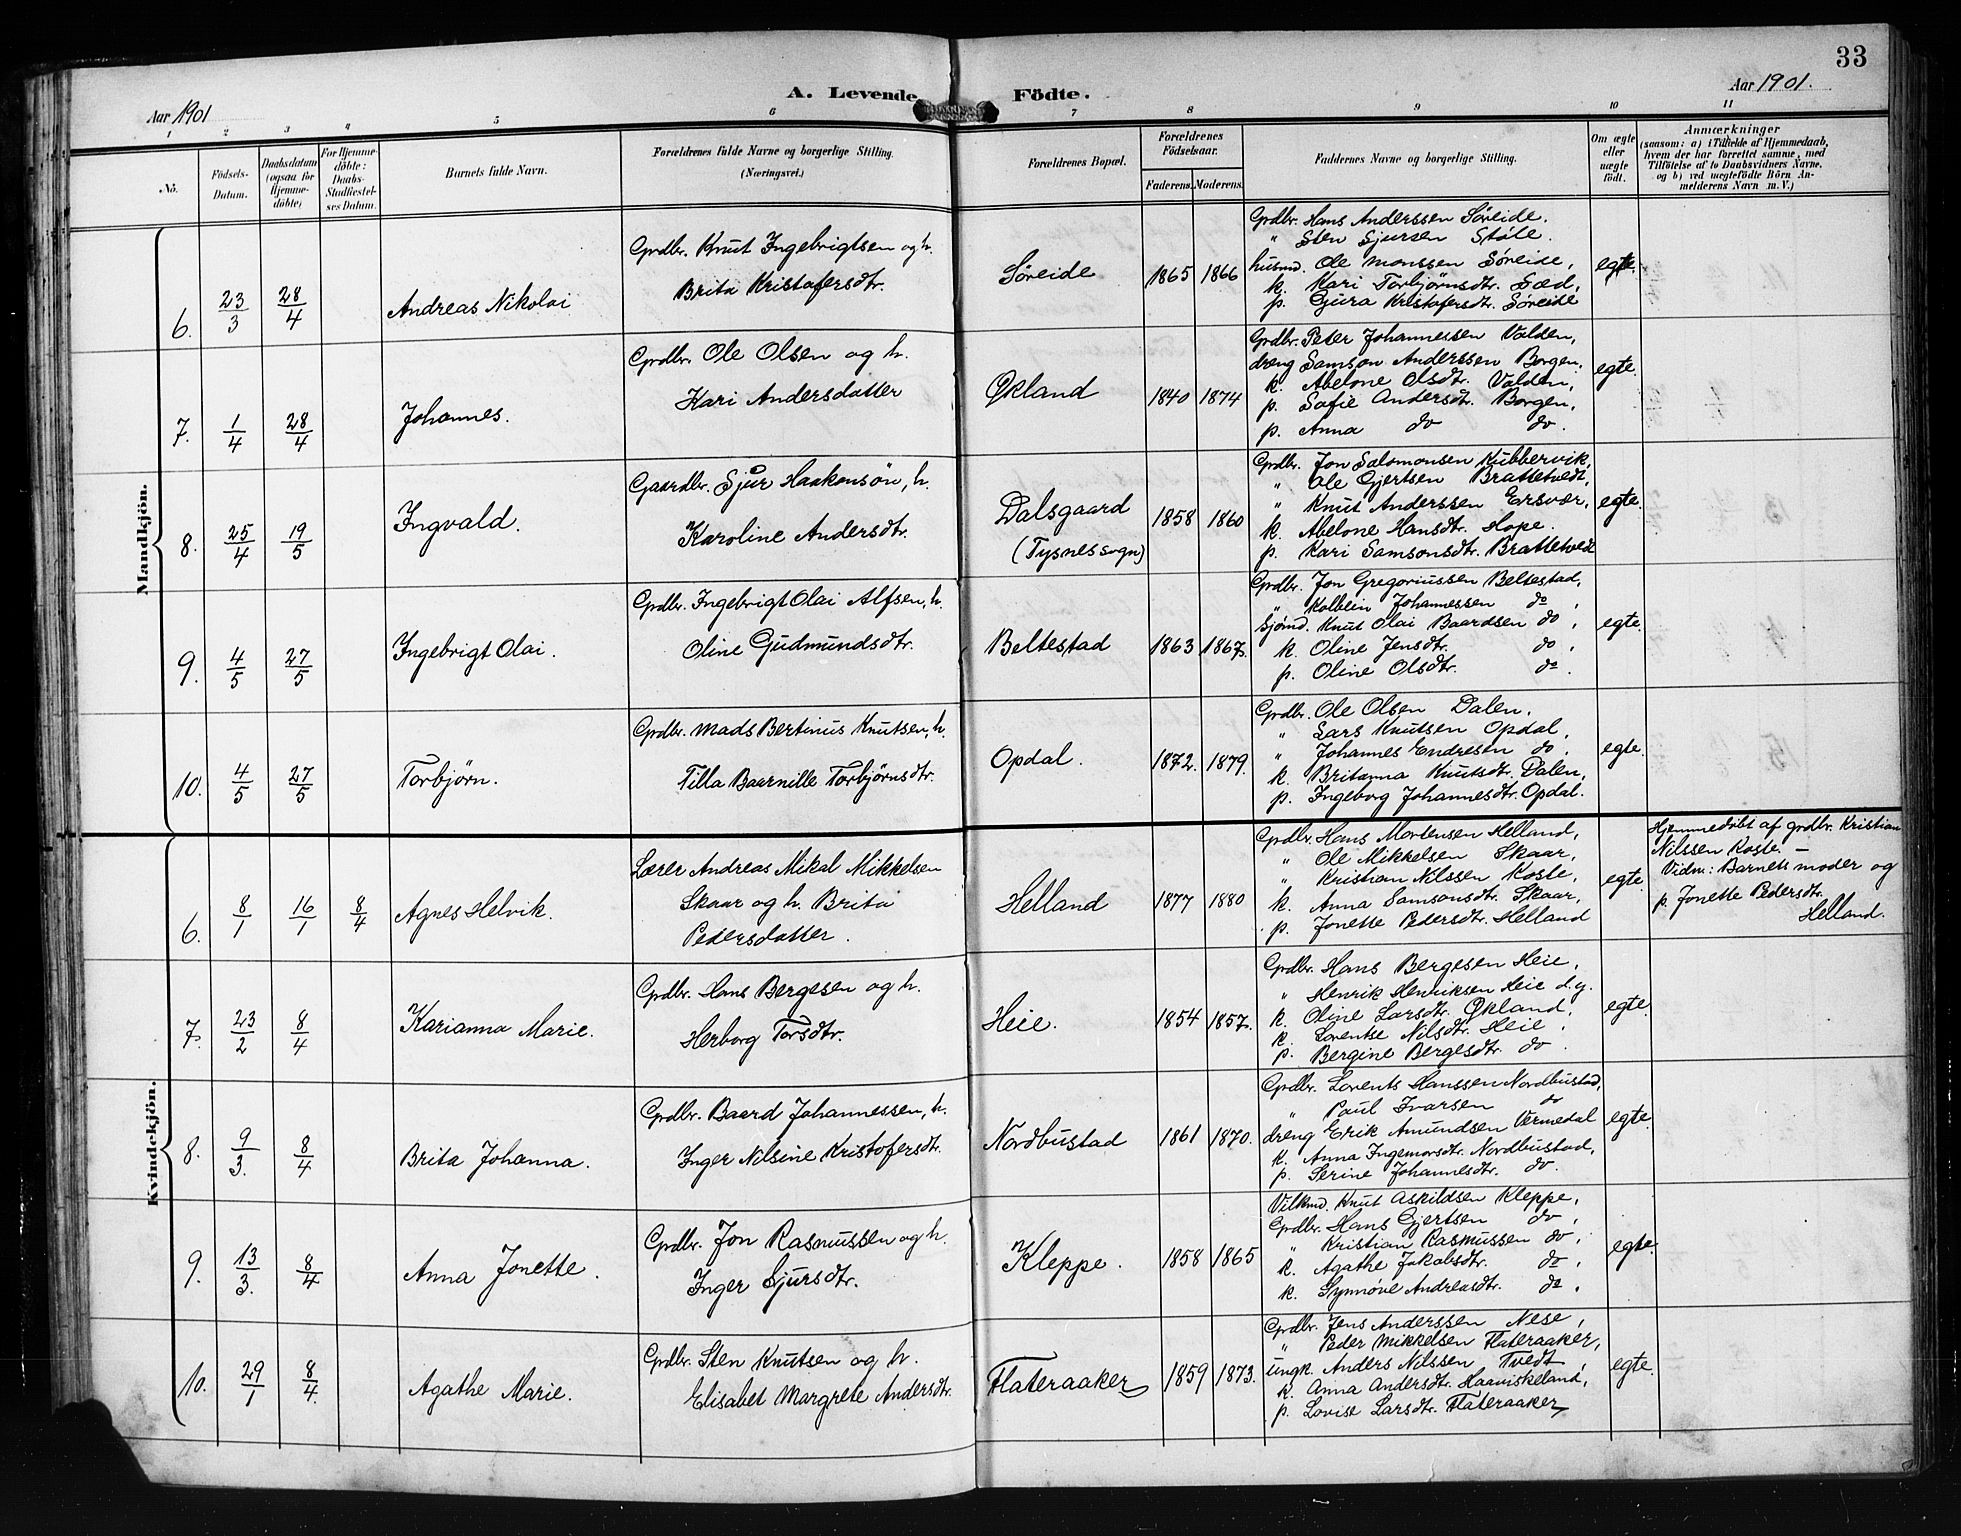 33
A. Levende Födte.
Aar 1901
Aar 1901.
1 2 3 4 5 6 7 8 9 10 11
No.
Födsels-Datum.
Daabsdatum (ogsaa for Hjemmedöbte)
For Hjemmedöbte: Daabs-Stadfæstelses Datum.
Barnets fulde Navn.
Forældrenes fulde Navne og borgerlige Stilling. (Næringsvei.)
Forældrenes Bopæl.
Forældrenes Födselsaar.
Faderens. Moderens.
Faddernes Navne og borgerlige Stilling.
Om ægte eller uægte födt.
Anmærkninger
(saasom: a) i Tilfælde af Hjemmedaab,
hvem der har forrettet samme, med
Tilföielse af to Daabsvidners Navne,
og b) ved uægtefödte Börn An-
melderens Navn m. V.)
Mandkjön.
6. 23/3 28/4 Andreas Nikolai
Grdbr. Knut Ingebrigtsen og h.
Brita Kristofersdtr.
Søreide 1865 1866
Grdbr. Hans Anderssen Søreide.
" Sten Sjursen Støle.
husmd. Ole Monssen Søreide,
k. Kari Torbjørnsdtr. Sæd,
p. Gjura Kristofersdtr. Søreide
egte.
7. 1/4 28/4 Johannes.
Grdbr. Ole Olsen og h.
Kari Andersdatter
Økland 1840 1874
Grdbr. Peter Johannessen Valden,
dreng Samson Anderssen Borgen,
k. Abelone Olsdtr. Valden,
p. Sofie Andersdtr. Borgen,
p. Anna do do.
egte.
8. 25/4 19/5 Ingvald.
Gaardbr. Sjur Haakonsøn, h.
Karoline Andersdtr.
Dalsgaard
(Tysnes sogn)
1858 1860
Grdbr. Jon Salomonsen Kubbervik,
" Ole Gjertsen Brattetvedt,
" Knut Anderssen Ersvær,
k. Abelone Hansdtr. Hope.
p. Kari Samsonsdtr. Brattetvedt
egte.
9. 4/5 27/5 Ingebrigt Olai.
Grdbr. Ingebrigt Olai Alfsen, h.
Oline Gudmundsdtr.
Beltestad 1863 1867.
Grdbr. Jon Gregoriussen Beltestad,
" Kolbein Johannessen do,
Sjømd. Knut Olai Baardsen do,
k. Oline Jensdtr. do,
p. Oline Olsdtr. do.
egte.
10. 4/5 27/5 Torbjørn.
Grdbr. Mads Bertinus Knutsen, h.
Tilla Baarnille Torbjørnsdtr.
Opdal. 1872. 1879.
Grdbr. Ole Olsen Dalen,
" Lars Knutsen Opdal,
" Johannes Endresen do,
k. Britanna Knutsdtr. Dalen,
p. Ingeborg Johannesdtr. Opdal.
egte.
Kvindekjön.
6. 8/1 16/1 8/4 Agnes Helvik.
Lærer Andreas Mikal Mikkelsen
Skaar og h. Brita
Pedersdatter.
Helland 1877 1880
Grdbr. Hans Mortensen Helland,
" Ole Mikkelsen Skaar,
" Kristian Nilssen Koste,
k. Anna Samsonsdtr. Skaar,
p. Jonette Pedersdtr. Helland
egte.
Hjemmedøbt af grdbr. Kristian
Nilssen Koste –
Vidn: Barnets moder og
p. Jonette Pedersdtr.
Helland.
7. 23/2 8/4 Karianna Marie.
Grdbr. Hans Bergesen og h.
Herborg Torsdtr.
Heie. 1854 1857.
Grdbr. Hans Bergesen Heie,
" Henrik Henriksen Heie d.y.
k. Oline Larsdtr. Økland,
k. Lorentse Nilsdtr. Heie,
p. Bergine Bergesdtr. do.
egte.
8. 9/3. 8/4 Brita Johanna.
Grdbr. Baard Johannessen, h.
Inger Nilsine Kristofersdtr.
Nordbustad 1861 1870.
Grdbr. Lorents Hanssen Nordbustad,
" Paul Ivarsen do
dreng Erik Amundsen Vermedal
k. Anna Ingemorsdtr. Nordbustad,
p. Serine Johannesdtr. do.
egte.
9. 13/3. 8/4 Anna Jonette.
Grdbr. Jon Rasmussen og h.
Inger Sjursdtr.
Kleppe. 1858 1865
Vilkmd. Knut Askildsen Kleppe,
Grdbr. Hans Gjertsen do,
" Kristian Rasmussen do,
k. Agathe Jakobsdtr. do,
k. Synnøve Andreasdtr. do.
egte.
10. 29/1 8/4. Agathe Marie.
Grdbr. Sten Knutsen og h.
Elisabet Margrete Andersdtr.
Flateraaker 1859 1873.
Grdbr. Jens Anderssen Nese,
" Peder Mikkelsen Flateraaker,
ungk. Anders Nilssen Tvedt,
k. Anna Andersdtr. Haaviskeland,
p. Lovise Larsdtr. Flateraaker
egte.